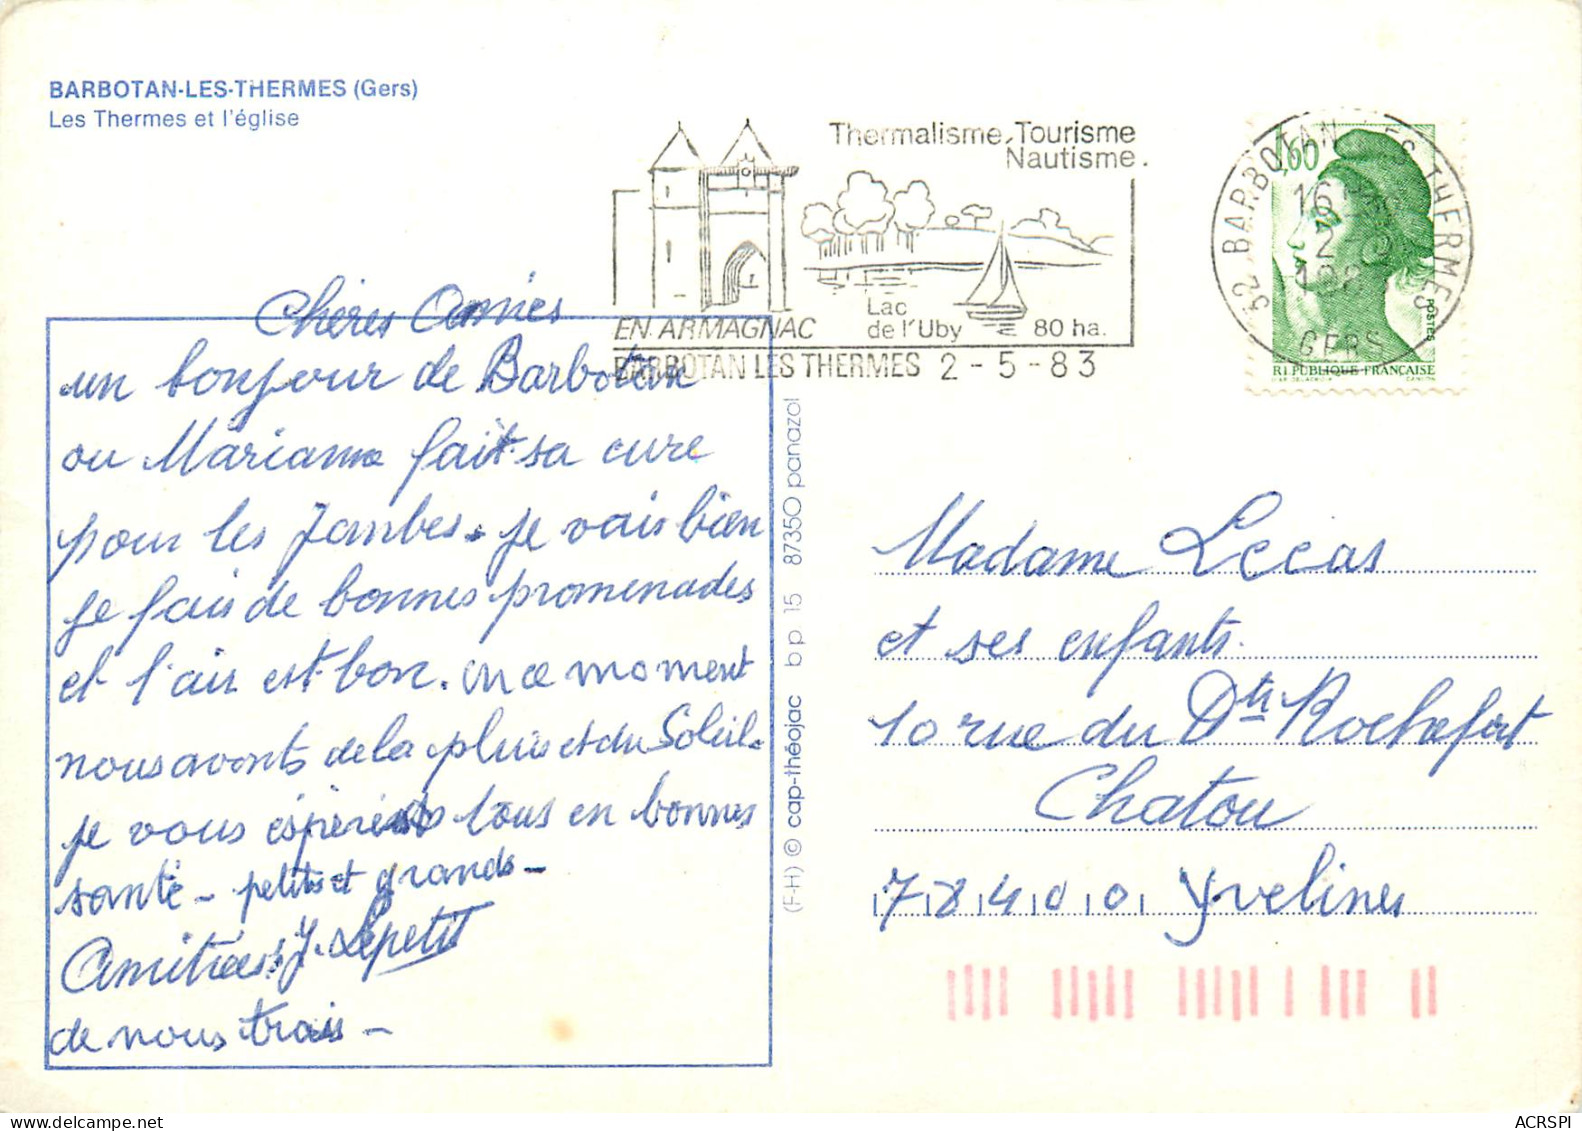 BARBOTAN-LES-THERMES (Gers)
Les Thermes et l'église
Thermalisme, Tourisme
Nautisme.
Lac
de l'Uby
80 ha.
EN ARMAGNAC
BARBOTAN LES THERMES 2 - 5 - 83
32 BARBOTAN LES THERMES
16
2-5
198
GERS
1,60
POSTES
RÉPUBLIQUE FRANÇAISE
Chères Amies
un bonjour de Barbotan
ou Marianne fait sa cure
pour les Jambes. je vais bien
je fais de bonnes promenades
et l'air est bon. en ce moment
nous avonts de la pluis et du Soleil.
je vous espère tous en bonnes
santé - petits et grands -
Amitiées, Y. Lepetit
de nous trois -
(F-H) © cap-théojac bp 15 87350 panazol
Madame Lecas
et ses enfants.
10 rue du Dte Rochefort
Chatou
78400 Yvelines
ACRSPI